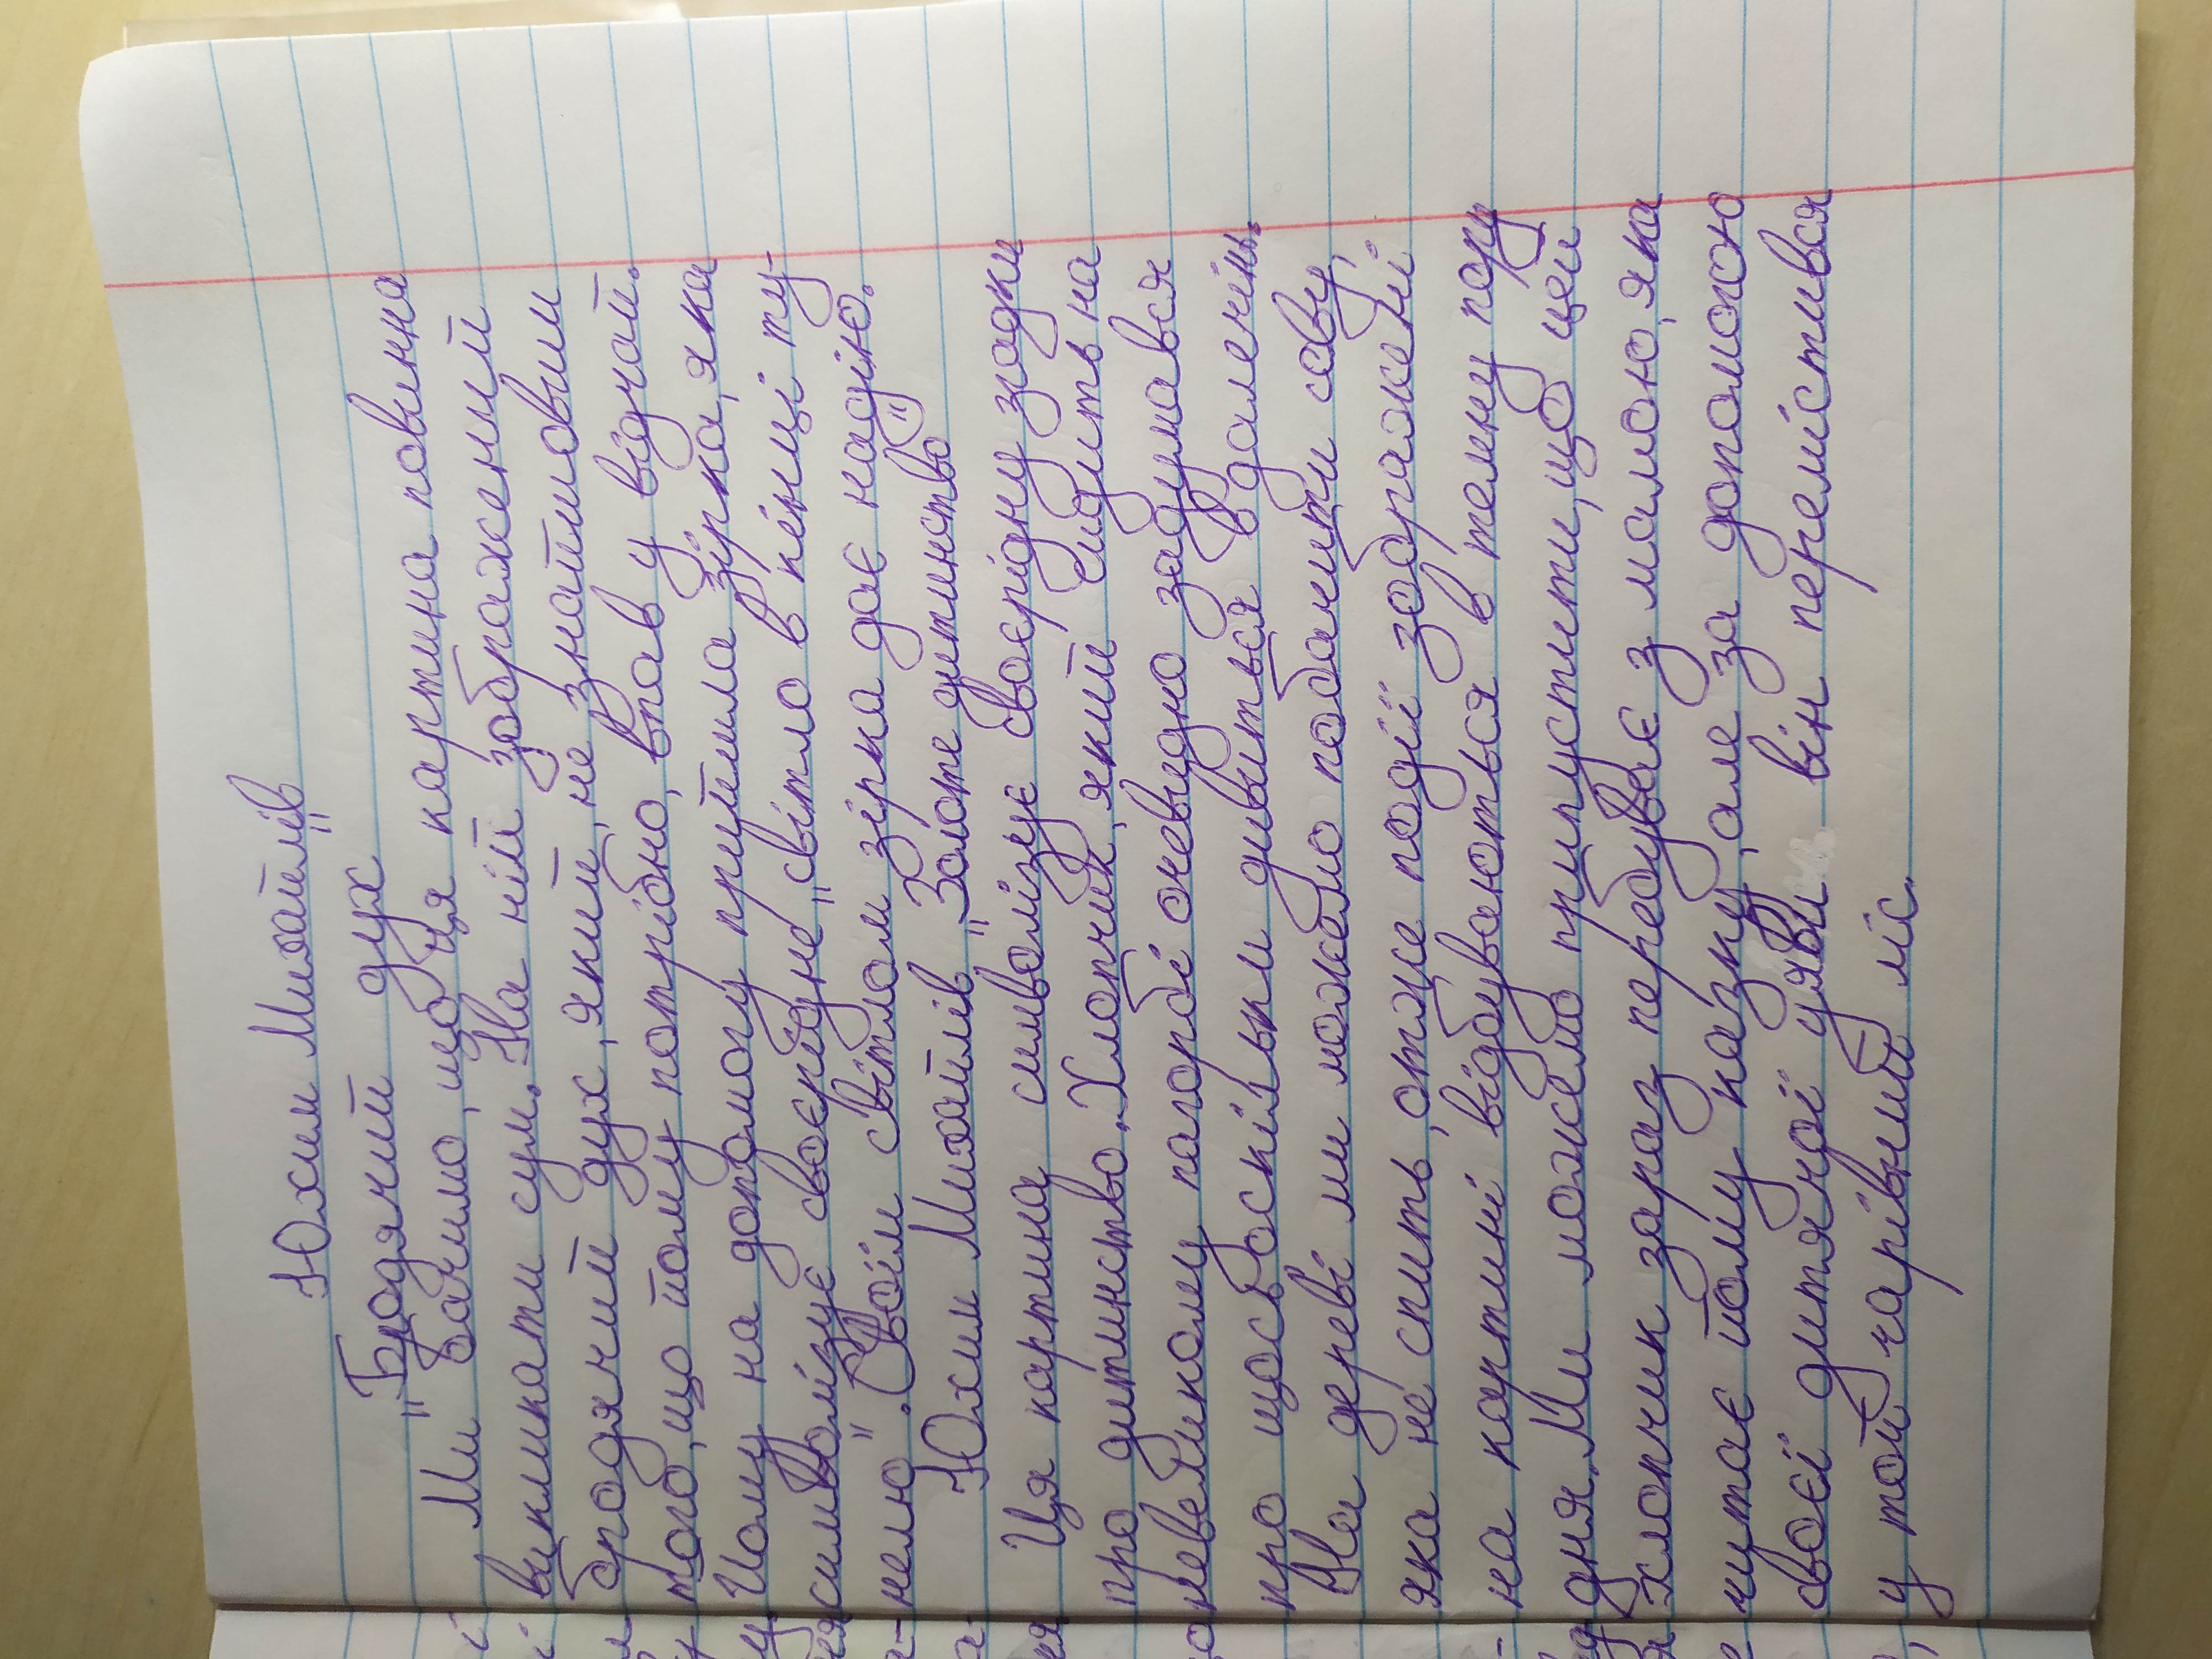 Юхим Михайлів
"Бродячий дух"
Ми бачимо, що ця картина повинна
викликати сум. На ній зображений
бродячий дух, який, не знайшовши
того, що йому потрібно, впав у відчай.
Йому на допомогу прийшла зірка, яка
символізує своєрідне "світло в кінці ту-
нелю". Своїм світлом зірка дає надію.
Юхим Михайлів "Золоте дитинство"
Ця картина символізує своєрідну згадки
про дитинство. Хлопчик, який сидить на
невеликому пагорбі очевидно задумався
про щось оскільки дивиться вдалечінь.
На дереві ми можемо побачити сову,
яка не спить, отже події зображені
на картині відбуваються в темну пору
дня. Ми можемо припустити, що цей
хлопчик зараз перебуває з мамою, яка
читає йому казку, але за допомогою
своєї дитячої уяви він перемістився
у той чарівний ліс.